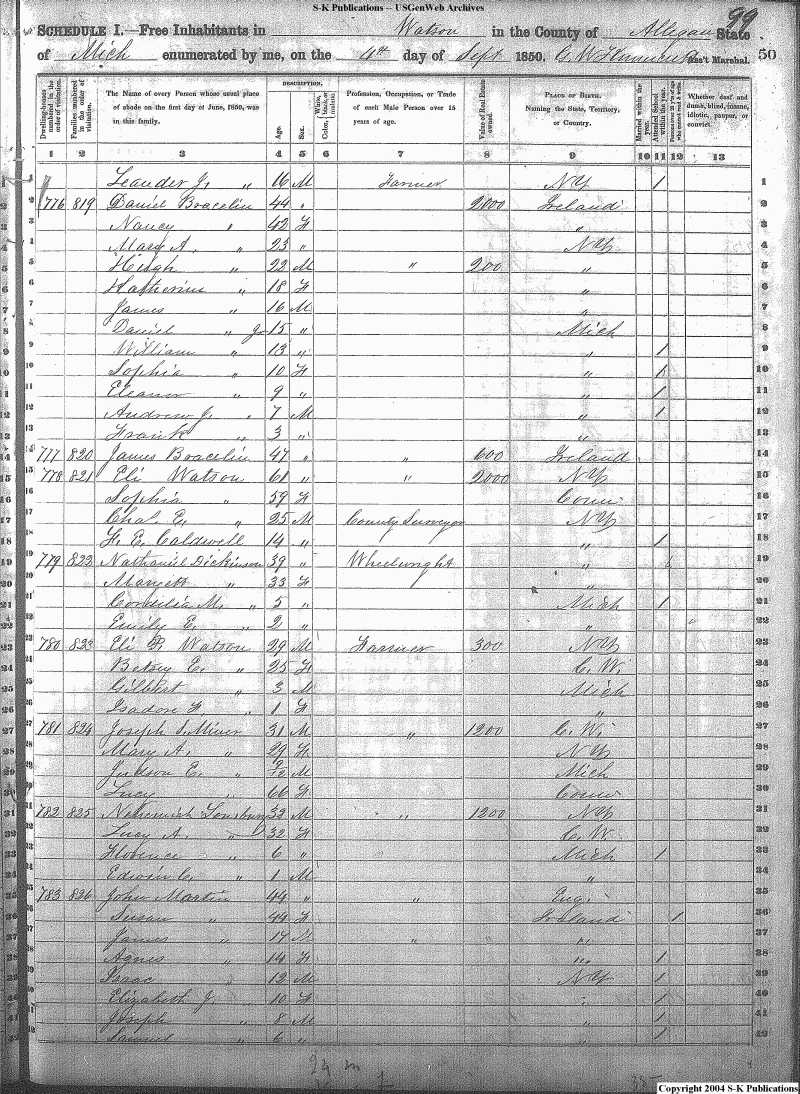 S-K Publications – USGenWeb Archives
99
SCHEDULE I.—Free Inhabitants in Watson in the County of Allegan State
of Mich enumerated by me, on the 4th day of Sept 1850. Ass't Marshal. 50
Dwelling-houses numbered in the order of visitation. Families numbered in the order of visitation. The Name of every Person whose usual place of abode on the first day of June, 1850, was in this family. DESCRIPTION. Age. Sex. Color, White, black, or mulatto. Profession, Occupation, or Trade of each Male Person over 15 years of age. Value of Real Estate owned. PLACE OF BIRTH. Naming the State, Territory, or Country. Married within the year. Attended School within the year. Persons over 20 y'rs of age who cannot read & write. Whether deaf and dumb, blind, insane, idiotic, pauper, or convict.
1 2 3 4 5 6 7 8 9 10 11 12 13
1 Leander J. " 16 M Farmer NY / 1
2 776 819 Daniel Bracelin 44 " 2000 Ireland 2
3 Nancy " 42 F " 3
4 Mary A. " 23 " NY 4
5 Heugh " 22 M " 200 " 5
6 Katherine " 18 F " 6
7 James " 16 M " 7
8 Daniel " Jr 15 " Mich 8
9 William " 13 " " / 9
10 Sophia " 10 F " / 10
11 Eleanor " 9 " " / 11
12 Andrew J. " 7 M " / 12
13 Frank " 3 " " 13
14 777 820 James Bracelin 47 " " 600 Ireland 14
15 778 821 Eli Watson 61 " " 2000 NY 15
16 Sophia " 59 F Conn 16
17 Chal. E. " 25 M County Surveyor NY 17
18 F. E. Caldwell 14 " " / 18
19 779 822 Nathaniel Dickinson 39 " Wheelwright " 19
20 Maryett " 33 F " 20
21 Cornelia M. " 5 " Mich / 21
22 Emily E. " 2 " " 22
23 780 823 Eli R. Watson 29 M Farmer 300 NY 23
24 Betsey E. " 25 F C. W. 24
25 Gilbert " 3 M Mich 25
26 Isadore F. " 1 F " 26
27 781 824 Joseph S. Miner 31 M " 1200 C. W. 27
28 Mary A. " 29 F NY 28
29 Judson E. " 9/12 M Mich 29
30 Lucy " 66 F Conn 30
31 782 825 Nehemiah Lonsbury 33 M " 1200 NY 31
32 Lucy A. " 32 F C. W. 32
33 Florence " 6 " Mich / 33
34 Edwin C. " 1 M " 34
35 783 826 John Martin 44 " " Eng. 35
36 Susan " 44 F Ireland / 36
37 James " 17 M " " 37
38 Agnes " 14 F " / 38
39 Isaac " 12 M NY / 39
40 Elizabeth J. " 10 F " / 40
41 Joseph " 8 M " / 41
42 Samuel " 6 " " / 42
24 m
Copyright 2004 S-K Publications